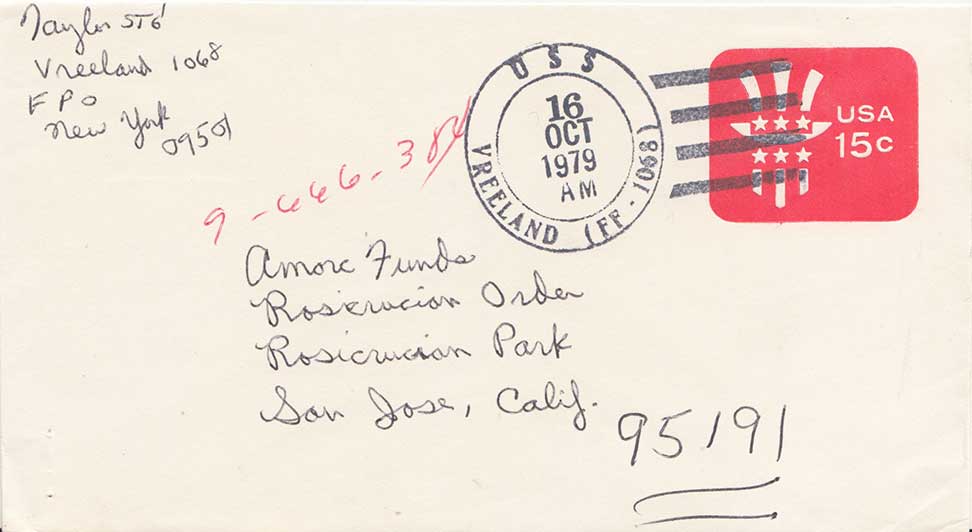 Taylor ST6
Vreeland 1068
FPO
New York
09501
USS
VREELAND (FF-1068)
16
OCT
1979
AM
USA
15c
9-666-384
Amorc Funds
Rosicrucian Order
Rosicrucian Park
San Jose, Calif.
95191